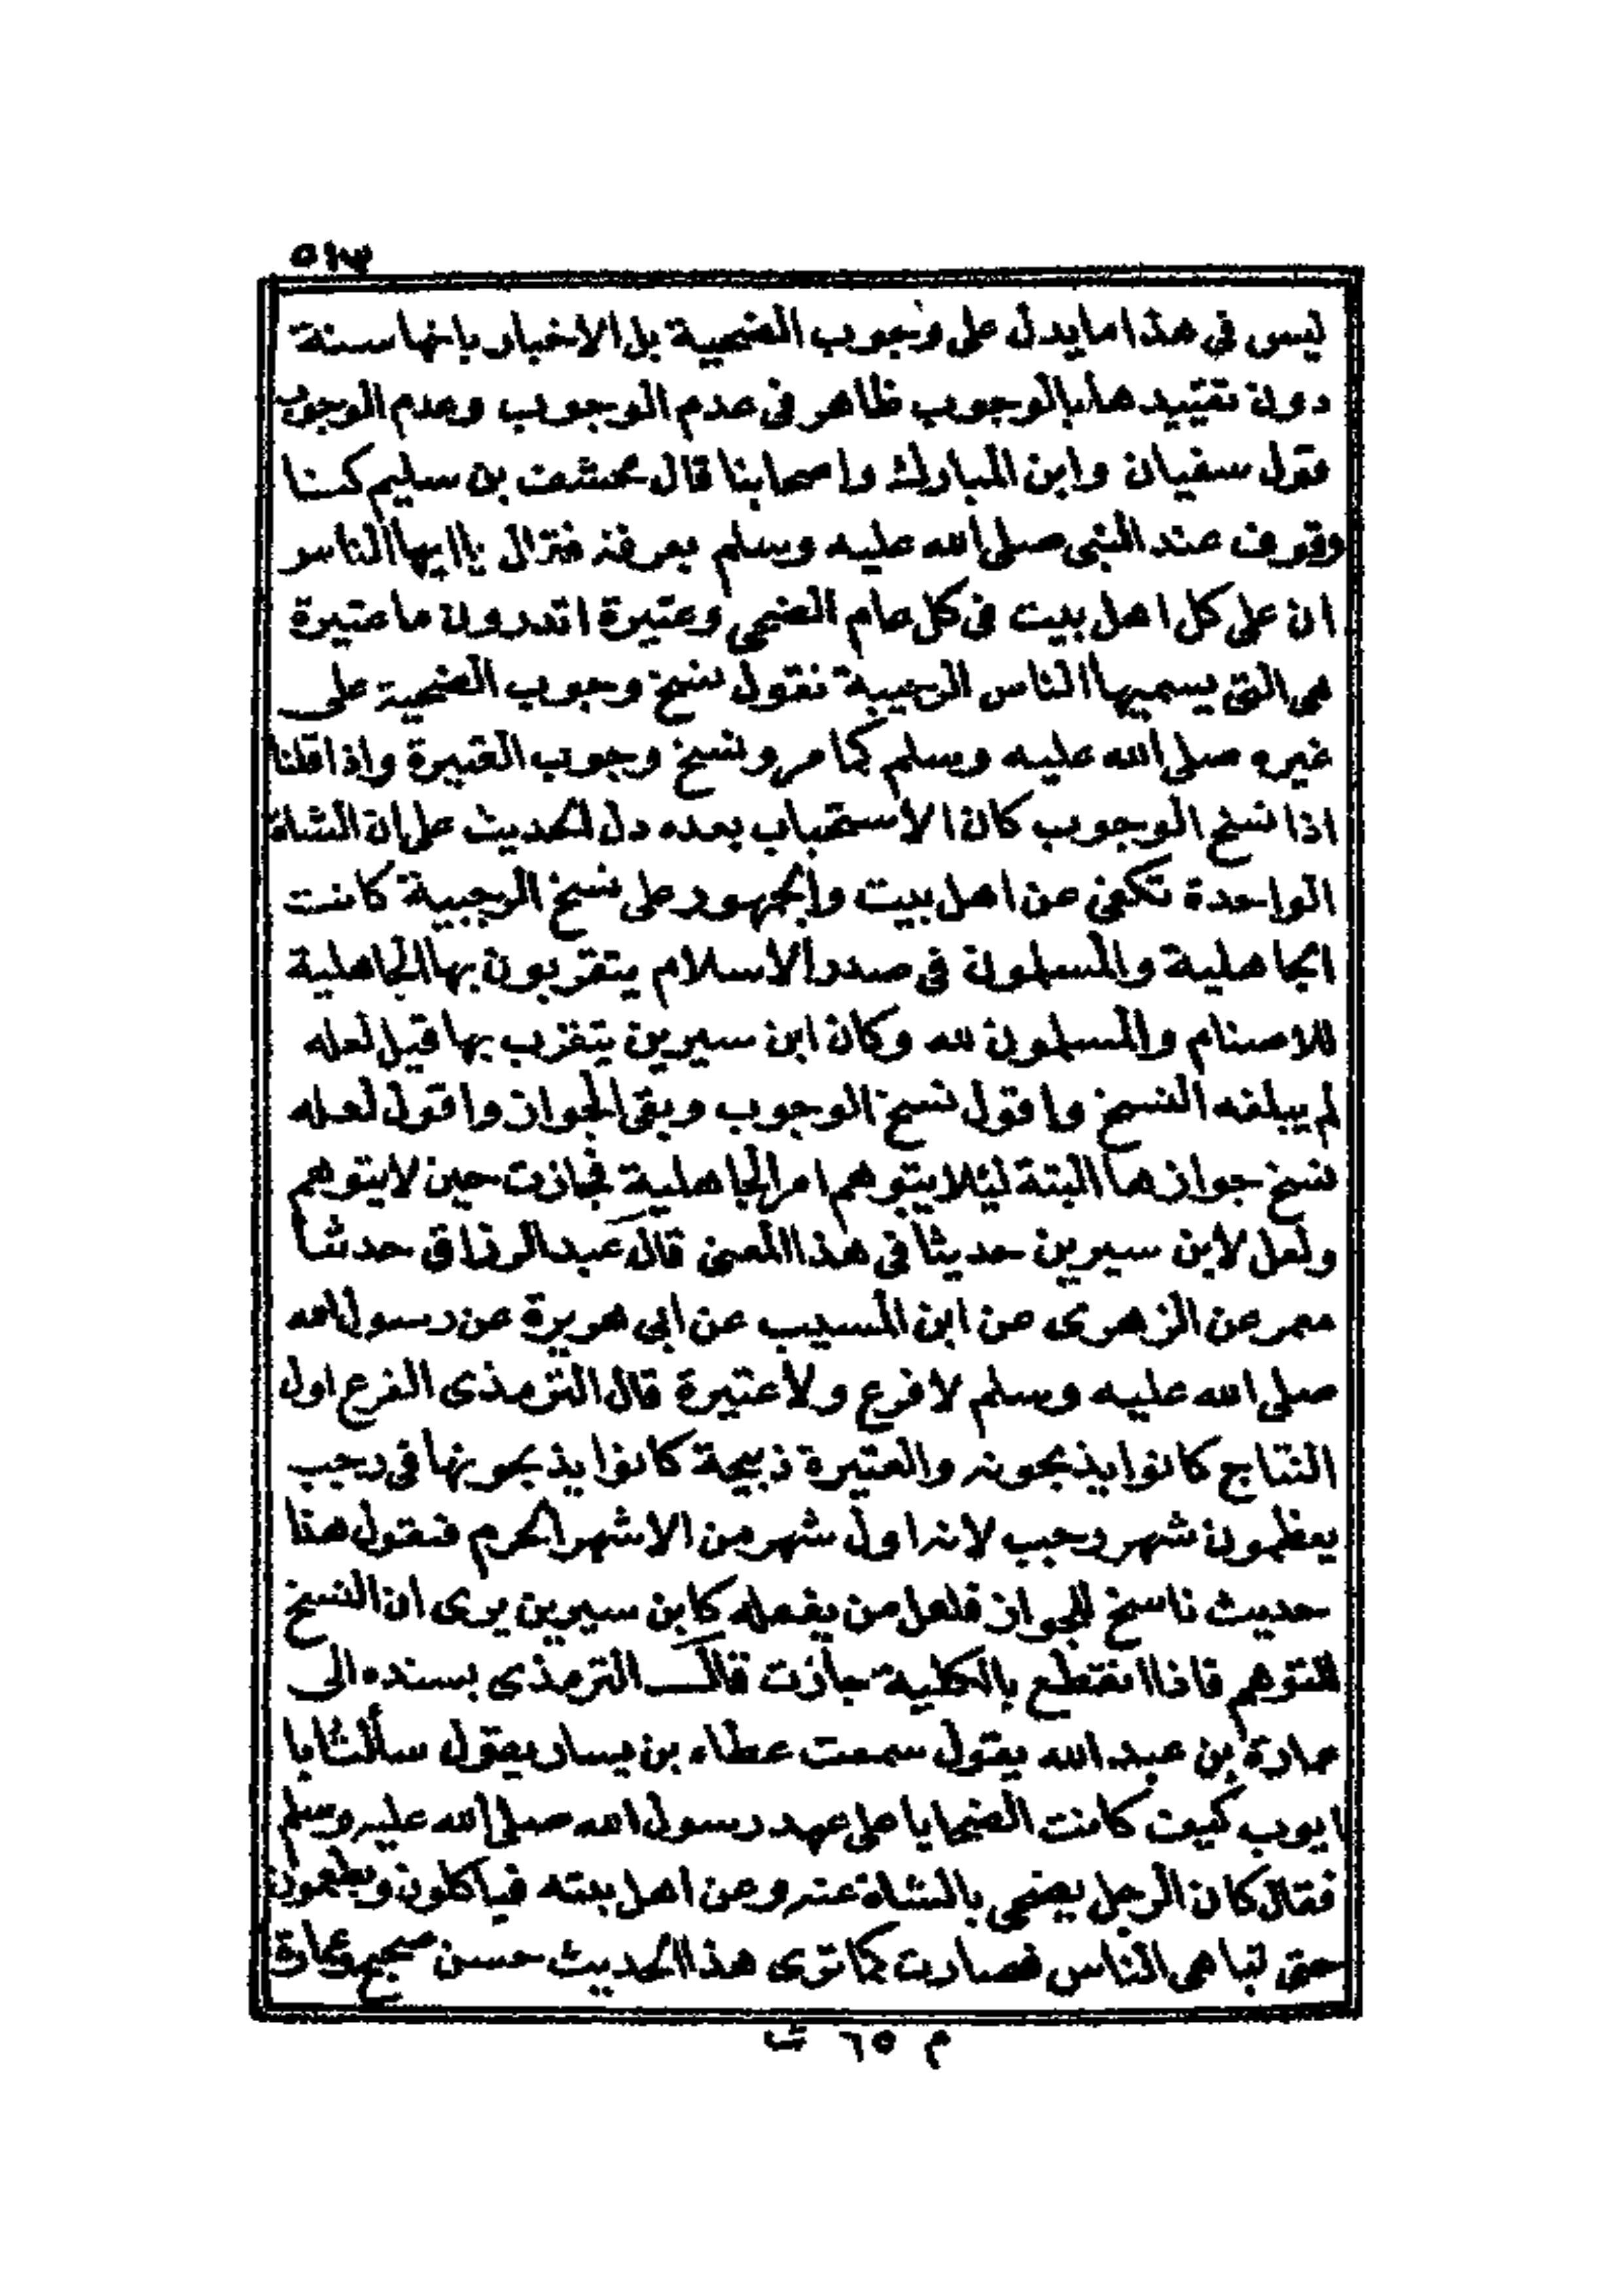 ٥١٣
ليس في هذا ما يدل على وجوب الضحية بل الاخبار بانها سنة
دون تقييدها بالوجوب ظاهر في عدم الوجوب وعدم الوجوب
قول سفيان وابن المبارك واصحابنا قال مخشف بن سليم كنا
وقوف عند النبي صلى الله عليه وسلم بعرفة فقال يا ايها الناس
ان على كل اهل بيت في كل عام الضحى وعتيرة اتدرون ما عتيرة
هي التي يسميها الناس الرجبية نقول نسخ وجوب الضحية على
غيره صلى الله عليه وسلم كما مر ونسخ وجوب العتيرة واذا قلنا
اذا نسخ الوجوب كان الاستحباب بعده دل الحديث على ان الشاة
الواحدة تكفي عن اهل بيت والجمهور على نسخ الرجبية كانت
الجاهلية والمسلمون في صدر الاسلام يتقربون بها الجاهلية
للاصنام والمسلمون لله وكان ابن سيرين يتقرب بها قيل لعله
لم يبلغه النسخ واقول نسخ الوجوب وبقي الجواز واقول لعله
نسخ جوازها البتة ليلا يتوهم امر الجاهلية فجازت حين لا يتوهم
ولعل لابن سيرين حديثا في هذا المعنى قال عبد الرزاق حدثنا
معمر عن الزهرى عن ابن المسيب عن ابي هريرة عن رسول الله
صلى الله عليه وسلم لا فرع ولا عتيرة قال الترمذى الفرع اول
النتاج كانوا يذبحونه والعتيرة ذبيحة كانوا يذبحونها في رجب
يعظمون شهر رجب لانه اول شهر من الاشهر الحرم فنقول هذا
حديث ناسخ للجواز فلعل من يفعله كابن سيرين يرى ان النسخ
للتوهم فاذا انقطع بالكلية جازت قال الترمذى بسنده الى
عمارة بن عبد الله يقول سمعت عطاء بن يسار يقول سألت ابا
ايوب كيف كانت الضحايا على عهد رسول الله صلى الله عليه وسلم
فقال كان الرجل يضحى بالشاة عنه وعن اهل بيته فياكلون ويطعمون
حتى تباهى الناس فصارت كما ترى هذا الحديث حسن صحيح وعمارة
م ٦٥ ث